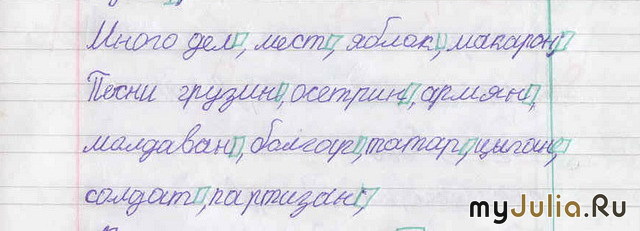 Много дел, мест, яблок, макарон,
Песни грузин, осетрин, армян,
малдаван, болгар, татар, цыган,
солдат, партизан,
myJulia.Ru